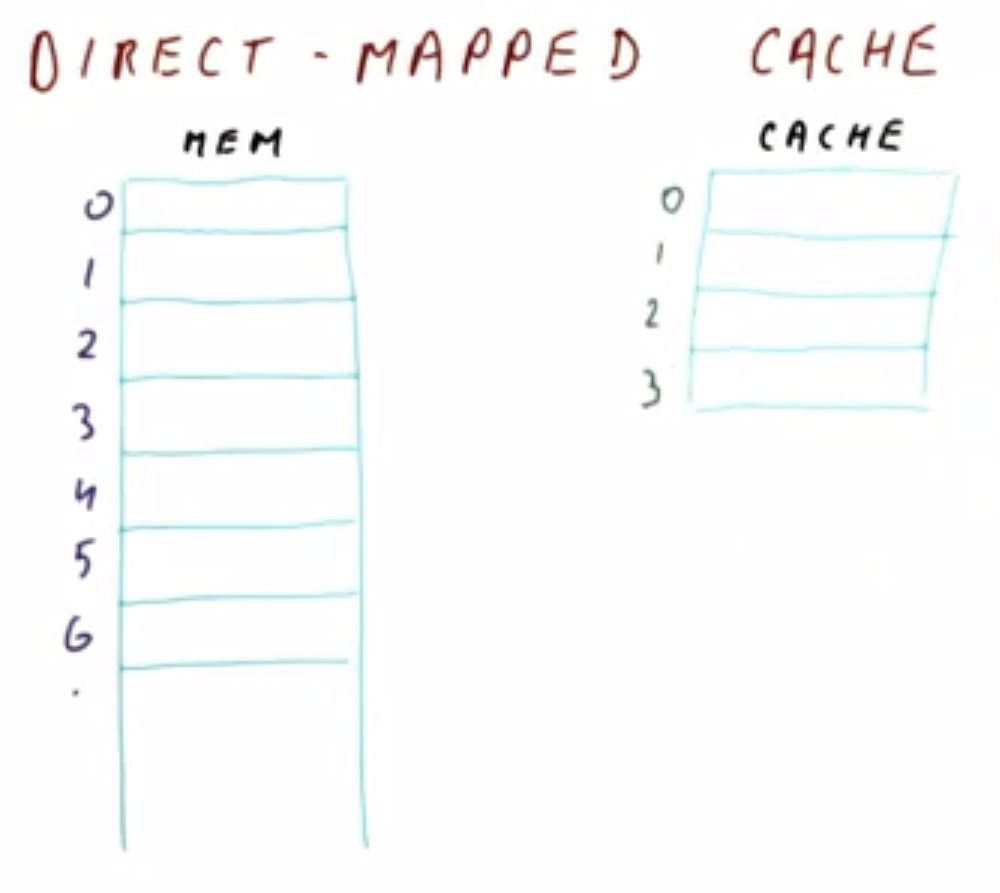 DIRECT - MAPPED CACHE
MEM
0
1
2
3
4
5
6
.
CACHE
0
1
2
3